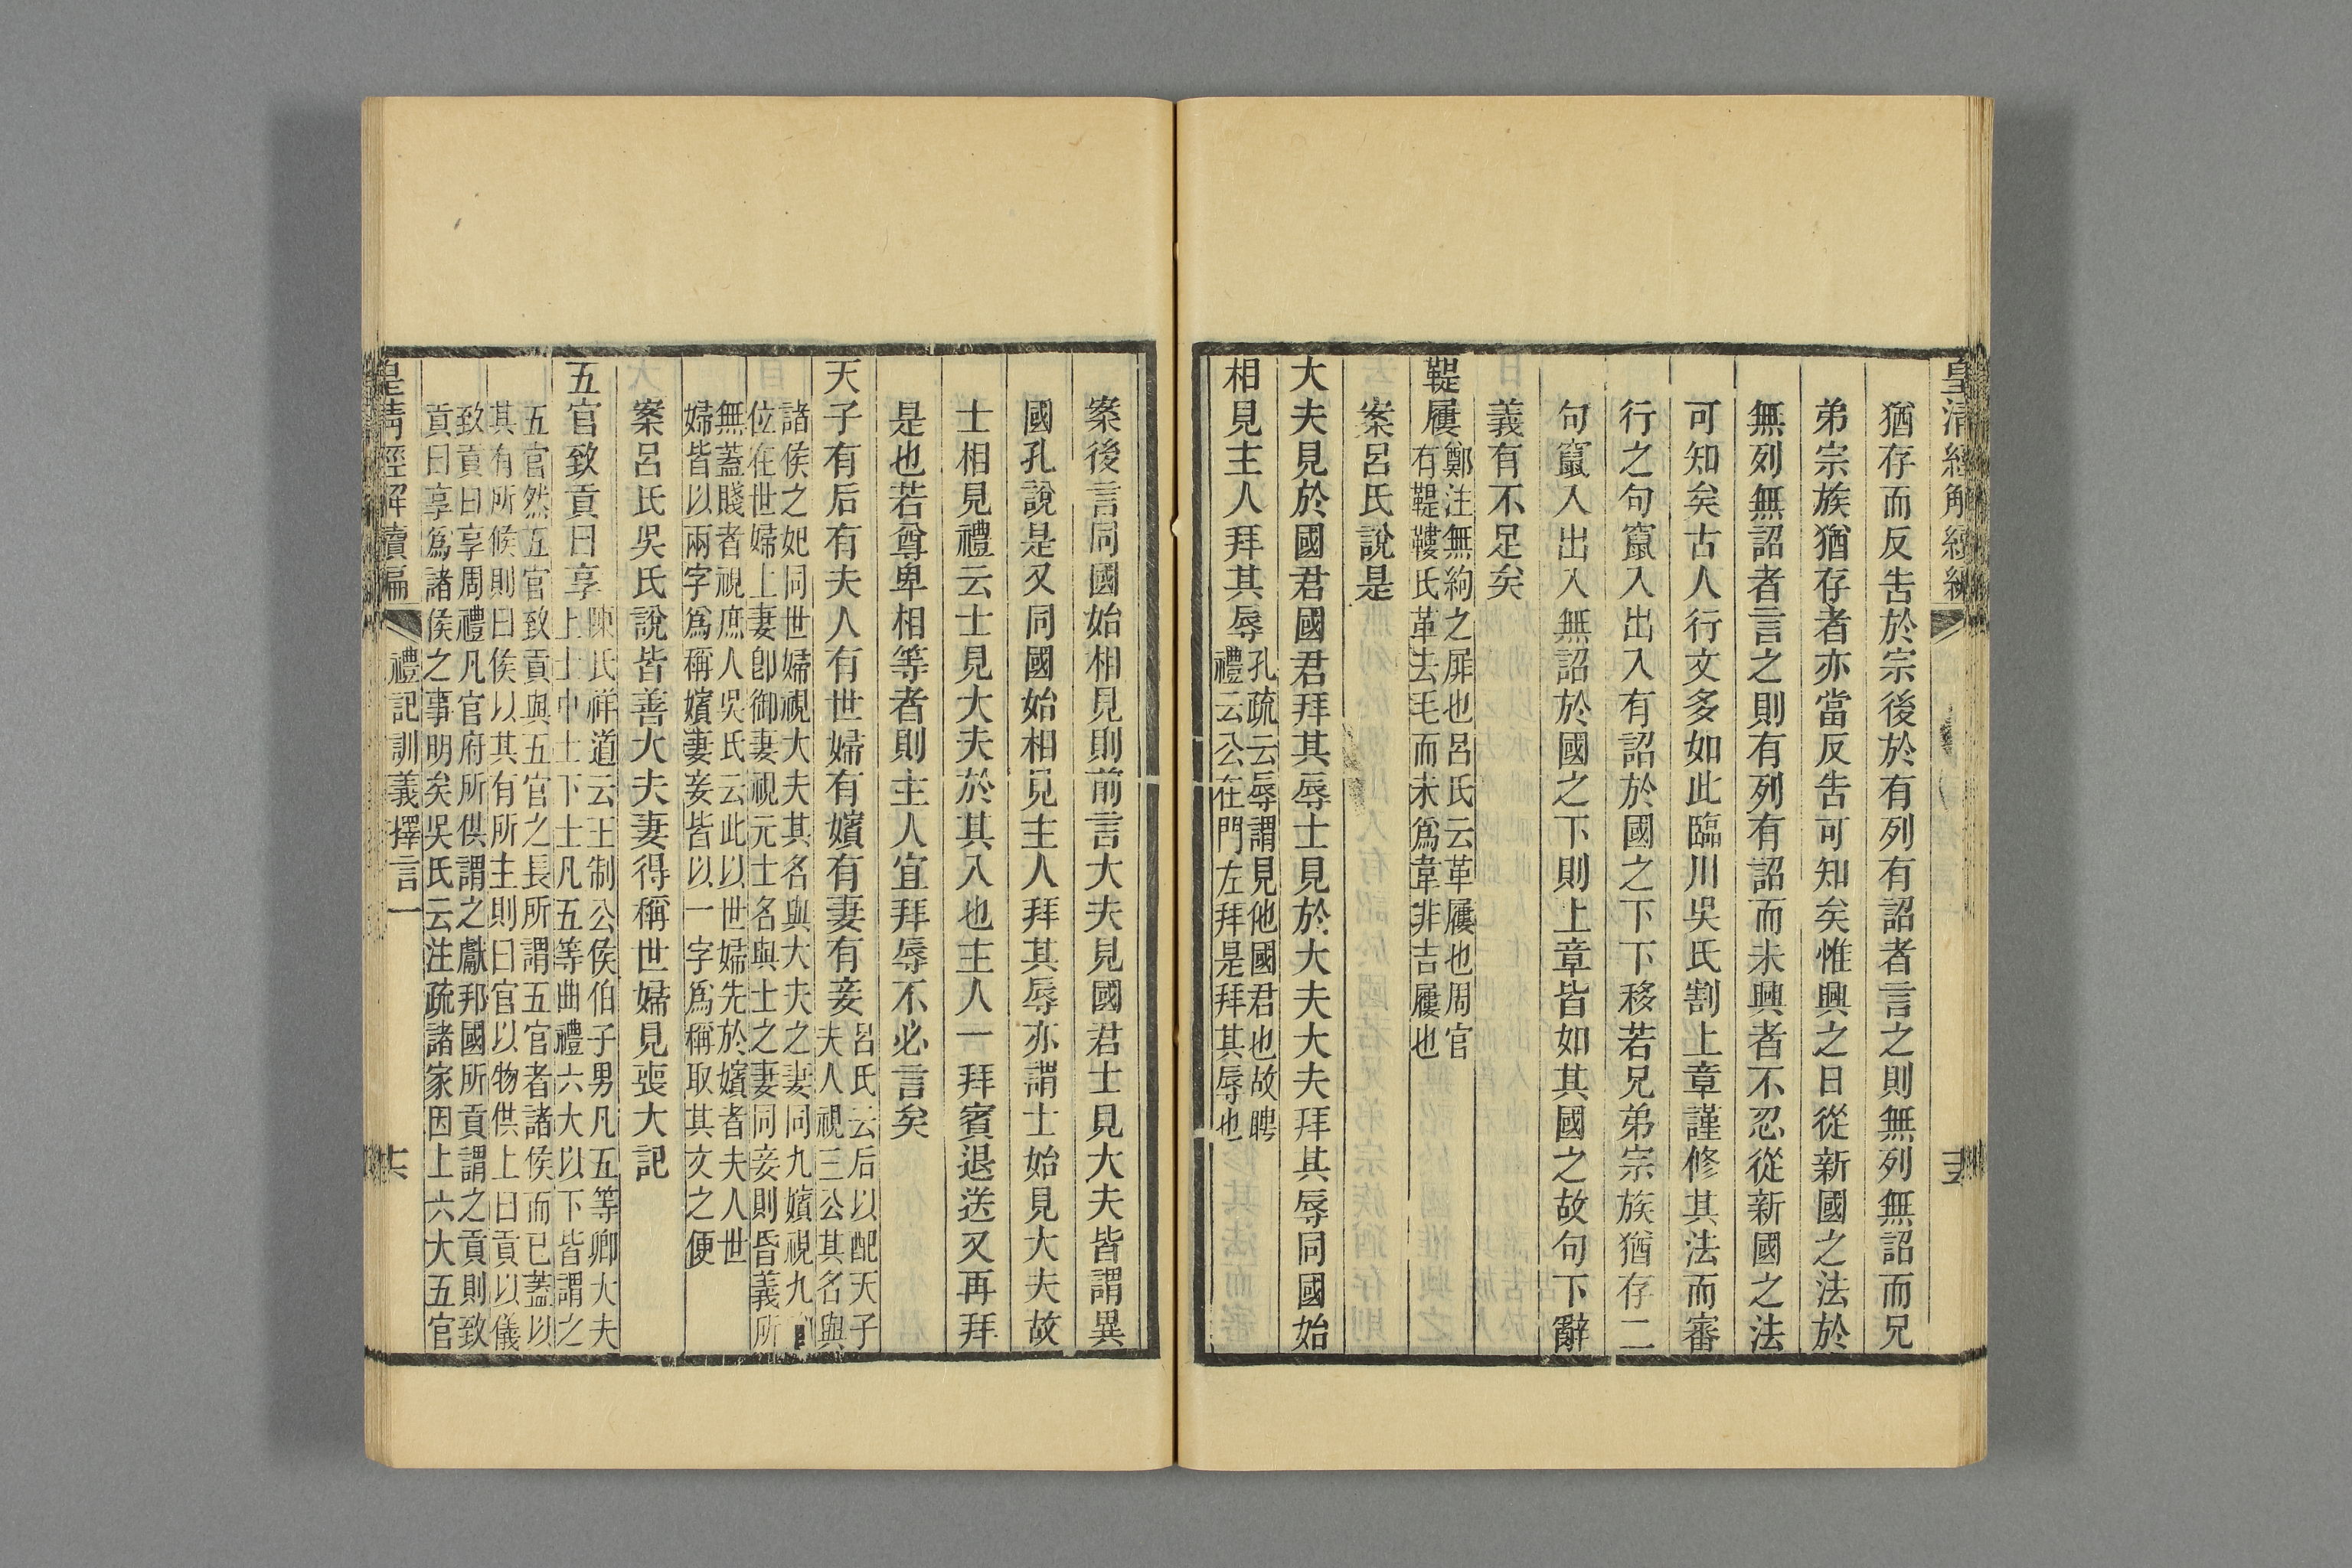 猶存而反告於宗後於有列有詔者言之則無列無詔而兄
弟宗族猶存者亦當反告可知矣惟興之日從新國之法於
無列無詔者言之則有列有詔而未興者不忍從新國之法
可知矣古人行文多如此臨川吳氏割上章謹修其法而審
行之句竄入出入有詔於國之下下移若兄弟宗族猶存二
句竄入出入無詔於國之下則上章皆如其國之故句下辭
義有不足矣
鞮屨鄭注無絇之屝也呂氏云革屨也周官
有鞮鞻氏革去毛而未爲韋非吉屨也
案呂氏說是
大夫見於國君國君拜其辱士見於大夫大夫拜其辱同國始
相見主人拜其辱孔疏云辱謂見他國君也故聘
禮云公在門左拜是拜其辱也
案後言同國始相見則前言大夫見國君士見大夫皆謂異
國孔說是又同國始相見主人拜其辱亦謂士始見大夫故
士相見禮云士見大夫於其入也主人一拜賓退送又再拜
是也若尊卑相等者則主人宜拜辱不必言矣
天子有后有夫人有世婦有嬪有妻有妾呂氏云后以配天子
夫人視三公其名與
諸侯之妃同世婦視大夫其名與大夫之妻同九嬪視九
位在世婦上妻卽御妻視元士名與士之妻同妾則昏義所
無蓋賤者視庶人吳氏云此以世婦先於嬪者夫人世
婦皆以兩字爲稱嬪妻妾皆以一字爲稱取其文之便
案呂氏吳氏說皆善大夫妻得稱世婦見喪大記
五官致貢曰享陳氏祥道云王制公侯伯子男凡五等卿大夫
上士中士下士凡五等曲禮六大以下皆謂之
五官然五官致貢與五官之長所謂五官者諸侯而已蓋以
其有所候則曰侯以其有所主則曰官以物供上曰貢以儀
致貢曰享周禮凡官府所供謂之獻邦國所貢謂之貢則致
貢曰享爲諸侯之事明矣吳氏云注疏諸家因上六大五官
皇清經解續編
禮記訓義擇言一